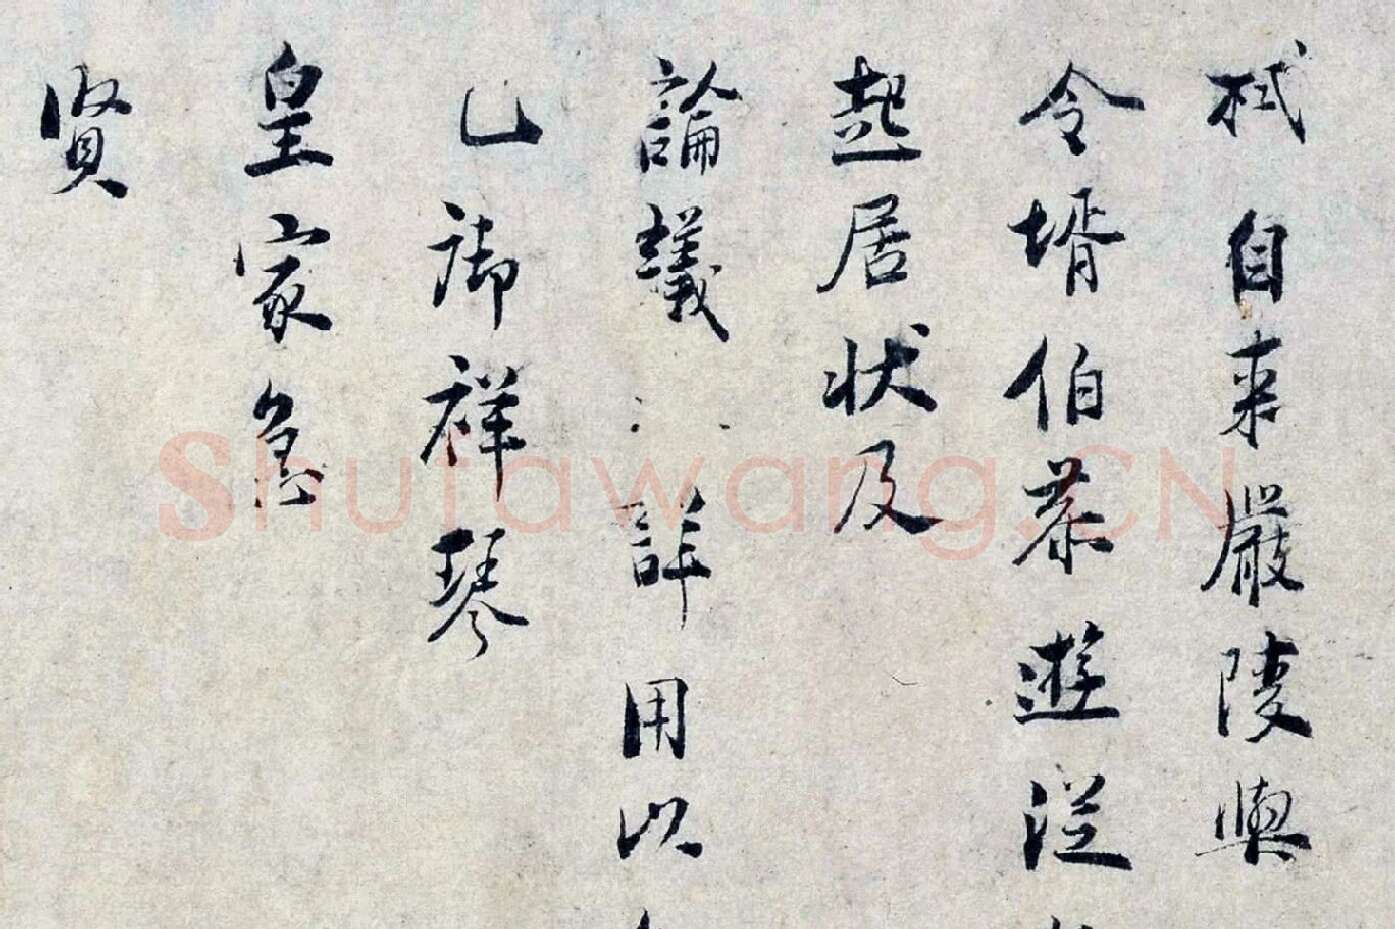 栻自来嚴陵與
令壻伯恭遊從
起居状及
論議 詳用以
已御祥琴
皇家急
賢
Shufawang.CN